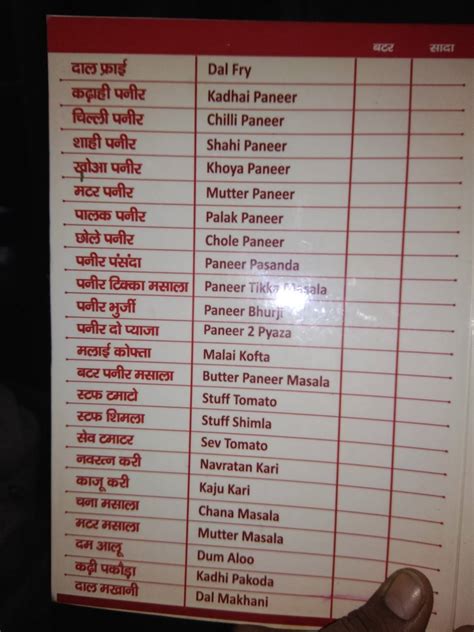 बटर सादा
दाल फ्राई Dal Fry
कढ़ाही पनीर Kadhai Paneer
चिल्ली पनीर Chilli Paneer
शाही पनीर Shahi Paneer
खोआ पनीर Khoya Paneer
मटर पनीर Mutter Paneer
पालक पनीर Palak Paneer
छोले पनीर Chole Paneer
पनीर पंसंदा Paneer Pasanda
पनीर टिक्का मसाला Paneer Tikka Masala
पनीर भुर्जी Paneer Bhurji
पनीर दो प्याजा Paneer 2 Pyaza
मलाई कोफ्ता Malai Kofta
बटर पनीर मसाला Butter Paneer Masala
स्टफ टमाटो Stuff Tomato
स्टफ शिमला Stuff Shimla
सेव टमाटर Sev Tomato
नवरत्न करी Navratan Kari
काजू करी Kaju Kari
चना मसाला Chana Masala
मटर मसाला Mutter Masala
दम आलू Dum Aloo
कढ़ी पकौड़ा Kadhi Pakoda
दाल मखानी Dal Makhani